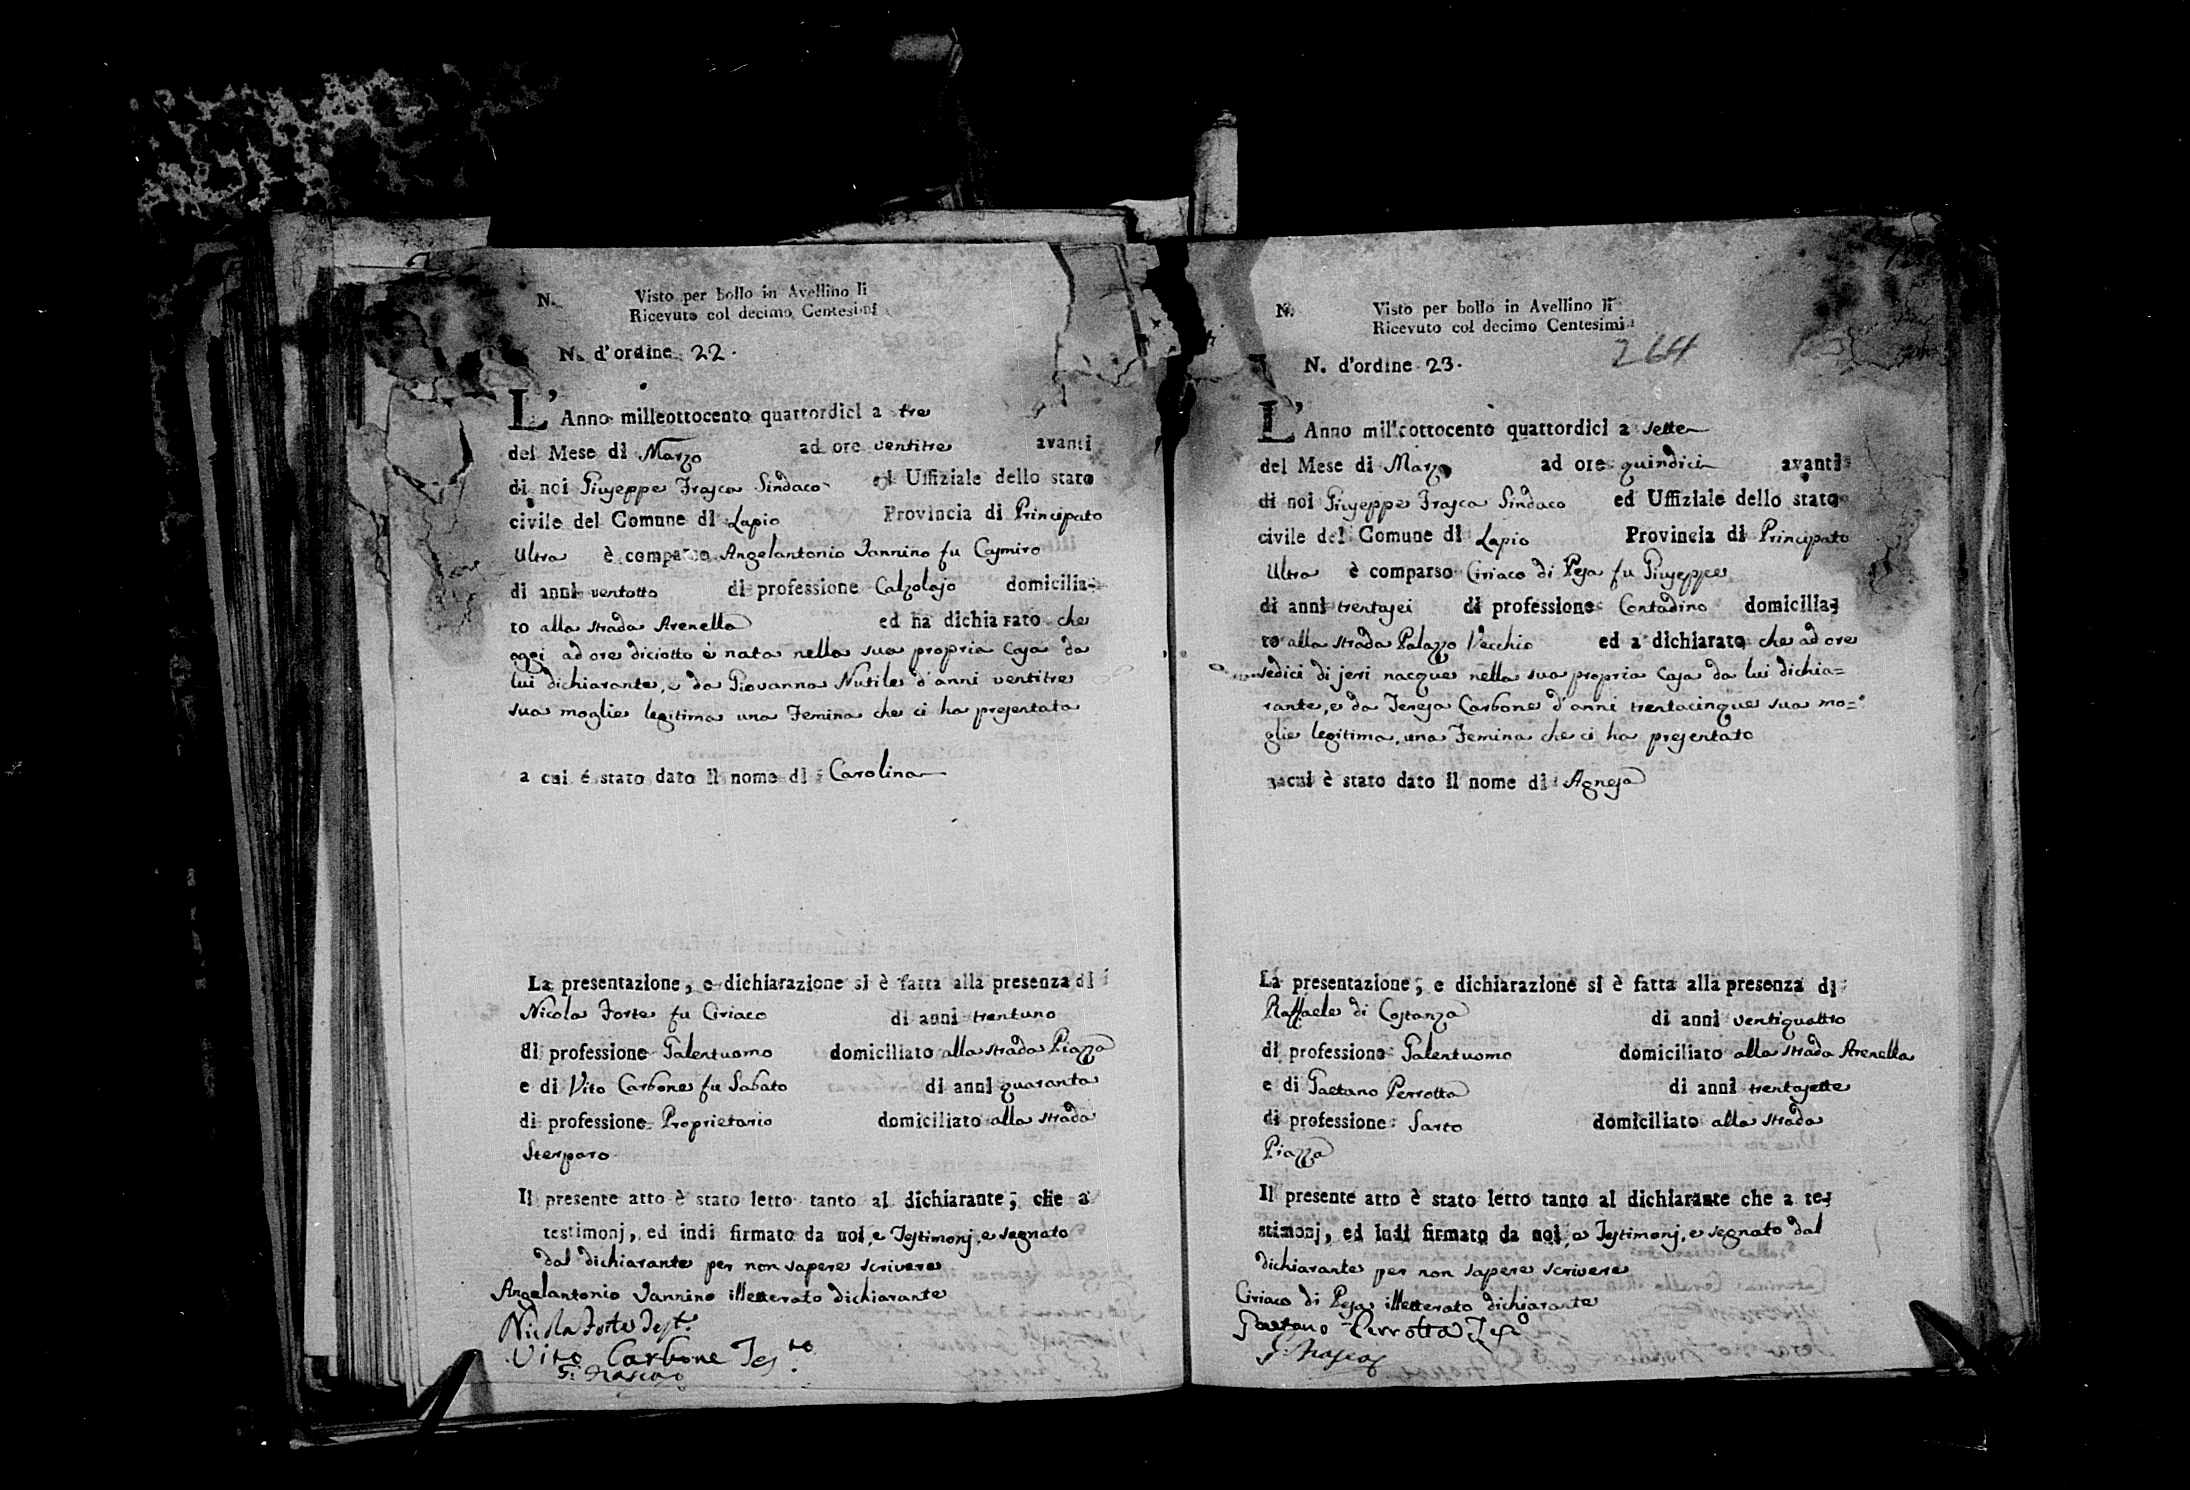 N. Visto per bollo in Avellino li
Ricevuto col decimo Centesimi
N. d'ordine 22.
L'Anno milleottocento quattordici a tre
del Mese di Marzo ad ore ventitre avanti
di noi Giuseppe Frasca Sindaco ed Uffiziale dello stato
civile del Comune di Lapio Provincia di Principato
Ultra è comparso Angelantonio Iannino fu Casmiro
di anni ventotto di professione Calzolajo domicilia-
to alla strada Arenella ed ha dichiarato che
oggi ad ore diciotto è nata nella sua propria casa da
lui dichiarante, e da Giovanna Nutile d'anni ventitre
sua moglie legitima una Femina che ci ha presentata
a cui è stato dato il nome di Carolina
La presentazione, e dichiarazione si è fatta alla presenza di
Nicola Forte fu Ciriaco di anni trentuno
di professione Galentuomo domiciliato alla strada Piazza
e di Vito Carbone fu Sabato di anni quaranta
di professione Proprietario domiciliato alla strada
Sterparo
Il presente atto è stato letto tanto al dichiarante, che a
testimonj, ed indi firmato da noi, e Testimonj, e segnato
dal dichiarante per non sapere scrivere
Angelantonio Iannino illetterato dichiarante
Nicola Forte Test.
Vito Carbone Testo
G. Frasca
N. Visto per bollo in Avellino li
Ricevuto col decimo Centesimi
264
N. d'ordine 23.
L'Anno milleottocento quattordici a sette
del Mese di Marzo ad ore quindici avanti
di noi Giuseppe Frasca Sindaco ed Uffiziale dello stato
civile del Comune di Lapio Provincia di Principato
Ultra è comparso Ciriaco di Pesa fu Giuseppe
di anni trentasei di professione Contadino domicilia-
to alla strada Palazzo Vecchio ed a dichiarato che ad ore
sedici di jeri nacque nella sua propria casa da lui dichia=
rante, e da Teresa Carbone d'anni trentacinque sua mo=
glie legitima, una Femina che ci ha presentato
a cui è stato dato il nome di Agnesa
La presentazione, e dichiarazione si è fatta alla presenza di
Raffaele di Costanza di anni ventiquattro
di professione Galentuomo domiciliato alla strada Arenella
e di Gaetano Perrotta di anni trentasette
di professione Sarto domiciliato alla strada
Piazza
Il presente atto è stato letto tanto al dichiarante che a te-
stimonj, ed indi firmato da noi, e Testimonj, e segnato dal
dichiarante per non sapere scrivere
Ciriaco di Pesa illetterato dichiarante
Gaetano Perrotta Tesº
G. Frasca